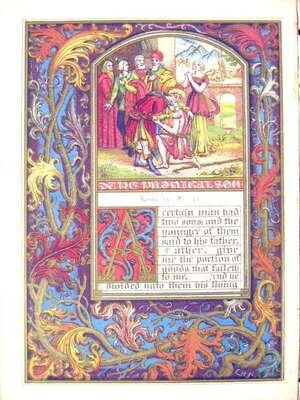 THE PRODIGAL SON
A
certain man had
two sons and the
younger of them
said to his father,
Father, give
me the portion of
goods that falleth
to me, and he
divided unto them his living